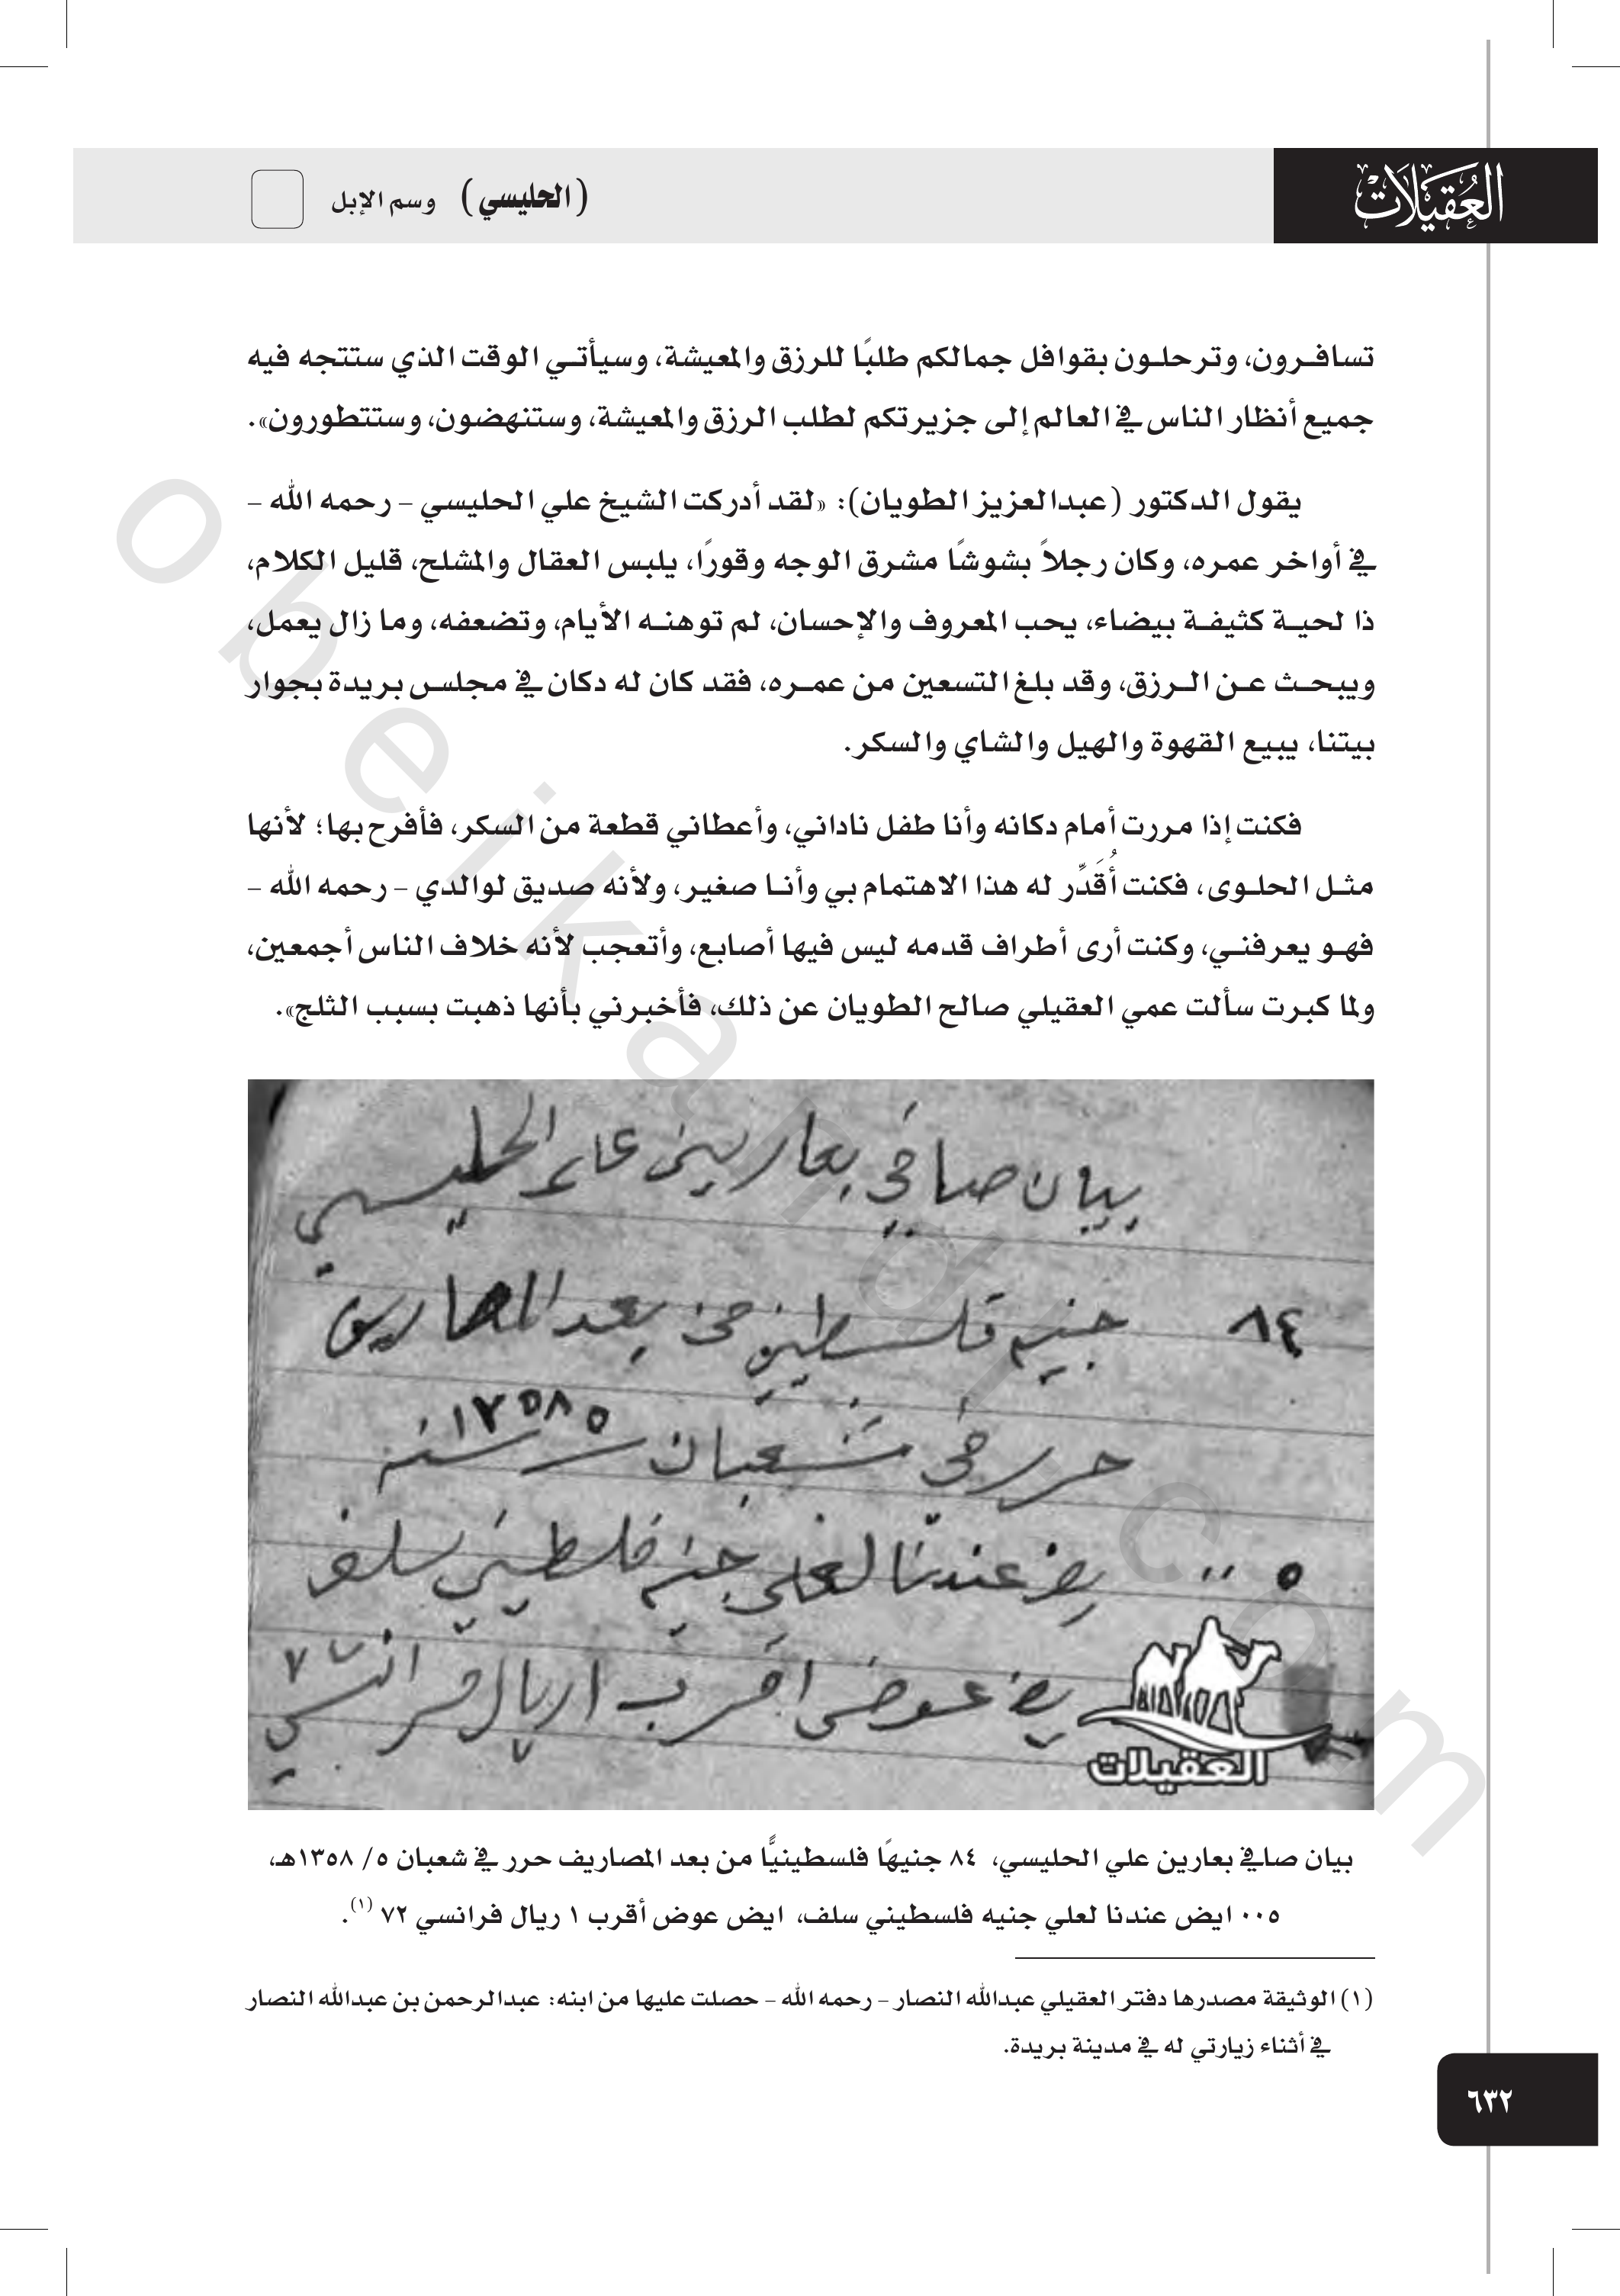 العُقيلات
(الحليسي) وسم الإبل
تسافرون، وترحلون بقوافل جمالكم طلبًا للرزق والمعيشة، وسيأتي الوقت الذي ستتجه فيه
جميع أنظار الناس في العالم إلى جزيرتكم لطلب الرزق والمعيشة، وستنهضون، وستتطورون».
يقول الدكتور (عبدالعزيز الطويان): «لقد أدركت الشيخ علي الحليسي – رحمه الله –
في أواخر عمره، وكان رجلاً بشوشًا مشرق الوجه وقورًا، يلبس العقال والمشلح، قليل الكلام،
ذا لحية كثيفة بيضاء، يحب المعروف والإحسان، لم توهنه الأيام، وتضعفه، وما زال يعمل،
ويبحث عن الرزق، وقد بلغ التسعين من عمره، فقد كان له دكان في مجلس بريدة بجوار
بيتنا، يبيع القهوة والهيل والشاي والسكر.
فكنت إذا مررت أمام دكانه وأنا طفل ناداني، وأعطاني قطعة من السكر، فأفرح بها؛ لأنها
مثل الحلوى، فكنت أُقَدِّر له هذا الاهتمام بي وأنا صغير، ولأنه صديق لوالدي – رحمه الله –
فهو يعرفني، وكنت أرى أطراف قدمه ليس فيها أصابع، وأتعجب لأنه خلاف الناس أجمعين،
ولما كبرت سألت عمي العقيلي صالح الطويان عن ذلك، فأخبرني بأنها ذهبت بسبب الثلج».
بيان صافي بعارين علي الحليسي
٨٤ جنيه فلسطيني من بعد المصاريف
حرر في شعبان ٥ سنة ١٣٥٨
٠٠٥ ايض عندنا لعلي جنيه فلسطيني سلف
ايض عوض اقرب ١ ريال فرانسي ٧٢
العقيلات
بيان صافي بعارين علي الحليسي، ٨٤ جنيهًا فلسطينيًّا من بعد المصاريف حرر في شعبان ٥/ ١٣٥٨هـ،
٠٠٥ ايض عندنا لعلي جنيه فلسطيني سلف، ايض عوض أقرب ١ ريال فرانسي ٧٢ (١).
(١) الوثيقة مصدرها دفتر العقيلي عبدالله النصار – رحمه الله – حصلت عليها من ابنه: عبدالرحمن بن عبدالله النصار
في أثناء زيارتي له في مدينة بريدة.
٦٣٢
obeikandl.com